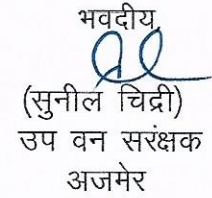 भवदीय,
(सुनील चिद्री)
उप वन सरंक्षक
अजमेर